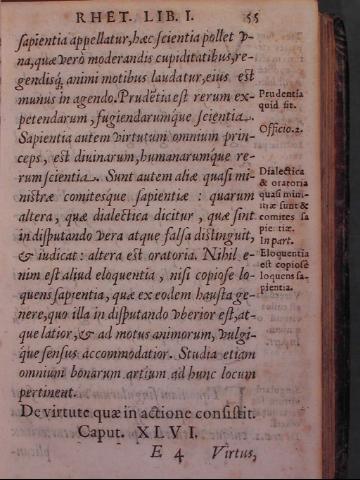 RHET. LIB. I. 55
sapientia appellatur, hæc scientia pollet v-
na, quæ verò moderandis cupiditatibus, re-
gendisq́; animi motibus laudatur, eius est
munus in agendo. Prudẽtia est rerum ex-
petendarum, fugiendarumq́ue scientia.
Sapientia autem virtutum omnium prin-
ceps, est diuinarum, humanarumq́ue re-
rum scientia. Sunt autem aliæ quasi mi-
nistræ comitesque sapientiæ: quarum
altera, quæ dialectica dicitur, quæ sint
in disputando vera atque falsa distinguit,
& iudicat: altera est oratoria. Nihil e-
nim est aliud eloquentia, nisi copiose lo-
quens sapientia, quæ ex eodem hausta ge-
nere, quo illa in disputando vberior est, at-
que latior, & ad motus animorum, vulgi-
q́ue sensus accommodatior. Studia etiam
omnium bonarum artium ad hunc locum
pertinent.
De virtute quæ in actione consistit.
Caput. XLVI.
E 4 Virtus,
Prudentia
quid sit.
Officio. 2.
Dialectica
& oratoria
quasi mini-
stræ sunt &
comites sa
pientiæ.
In part.
Eloquentia
est copiosè
loquens sa-
pientia.